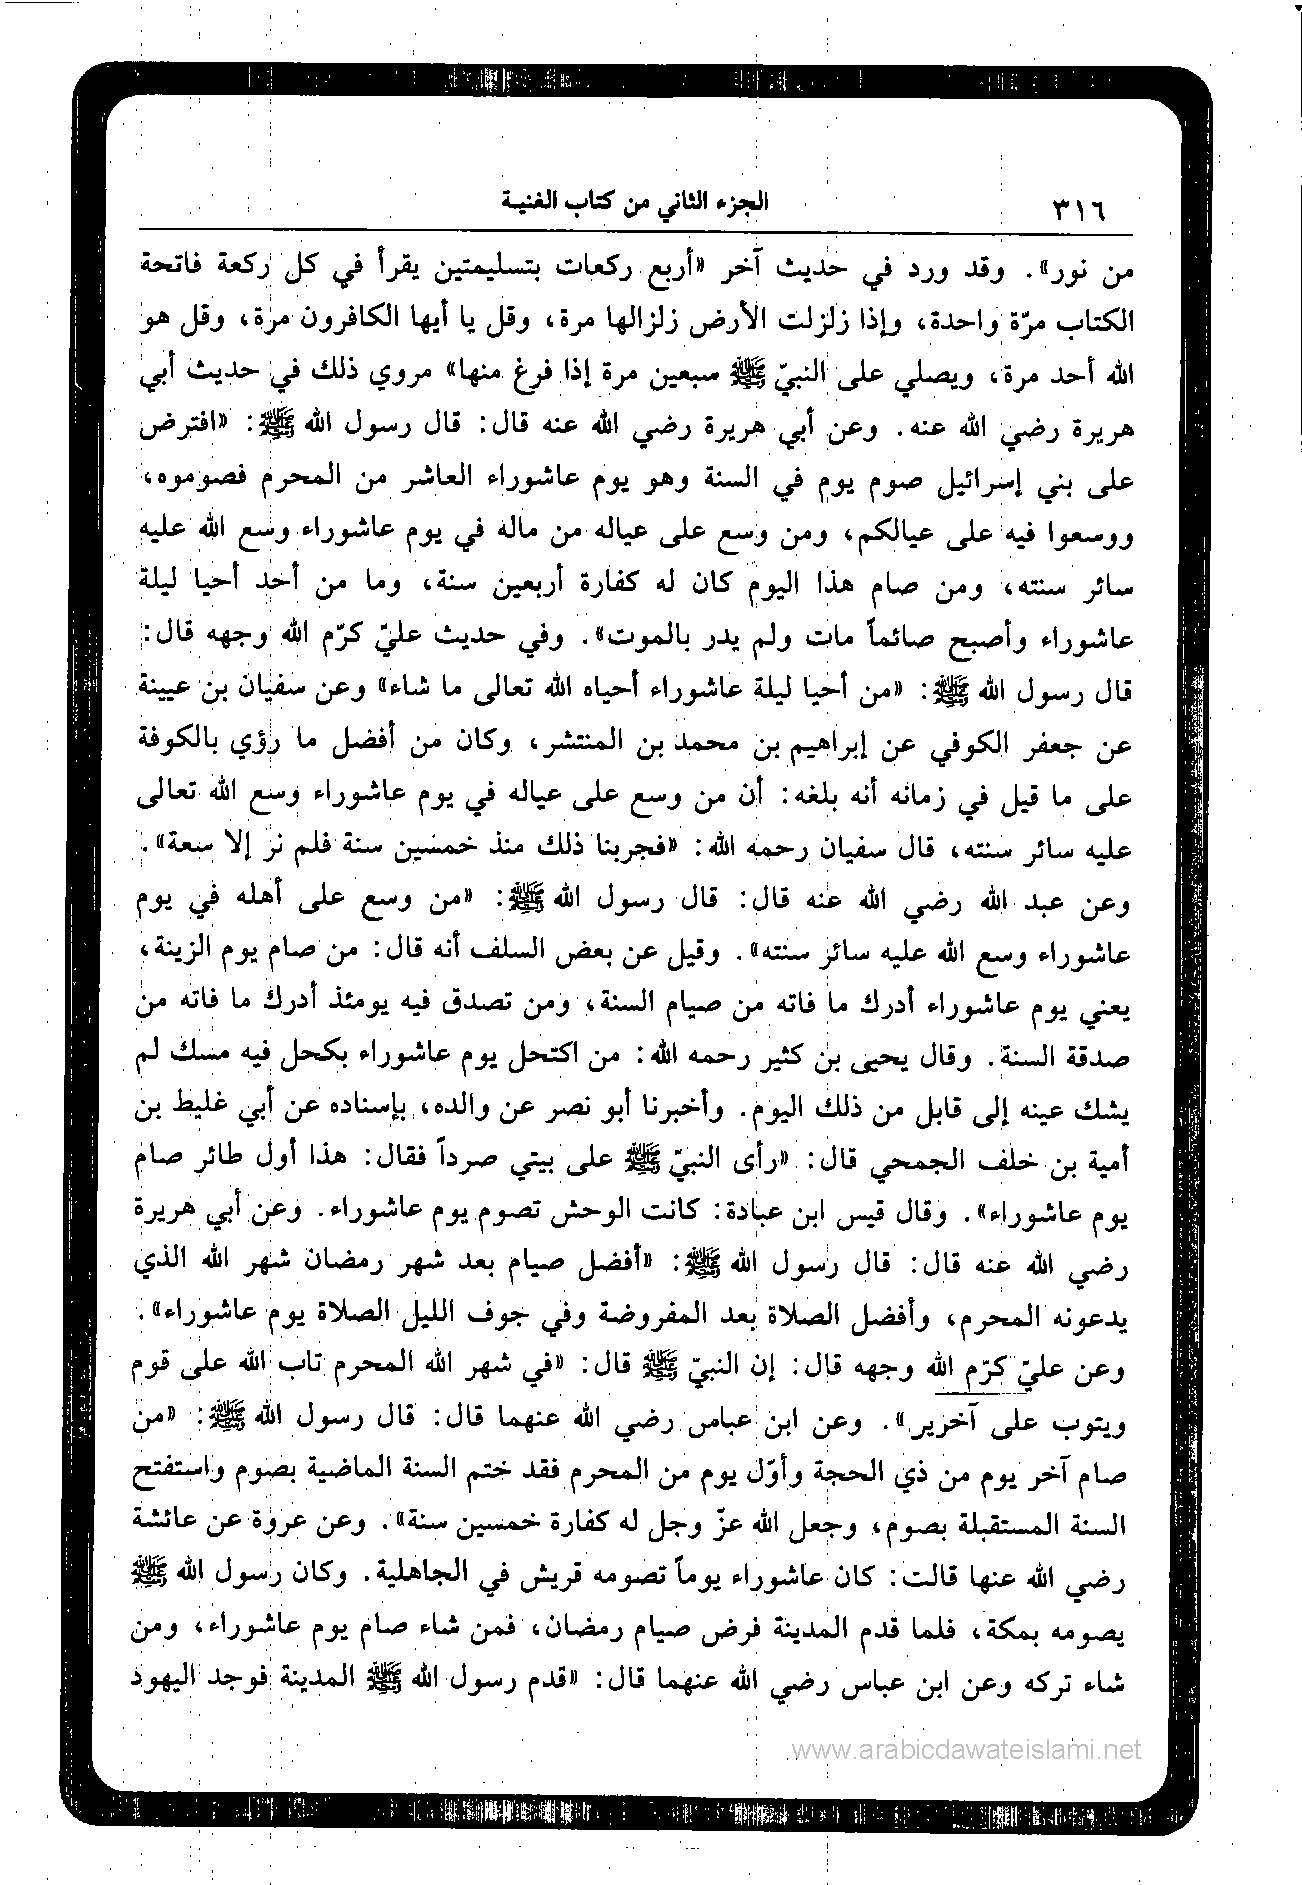 ٣١٦
الجزء الثاني من كتاب الغنية
من نور». وقد ورد في حديث آخر «أربع ركعات بتسليمتين يقرأ في كل ركعة فاتحة
الكتاب مرّة واحدة، وإذا زلزلت الأرض زلزالها مرة، وقل يا أيها الكافرون مرة، وقل هو
الله أحد مرة، ويصلي على النبيّ ﷺ سبعين مرة إذا فرغ منها» مروي ذلك في حديث أبي
هريرة رضي الله عنه. وعن أبي هريرة رضي الله عنه قال: قال رسول الله ﷺ: «افترض
على بني إسرائيل صوم يوم في السنة وهو يوم عاشوراء العاشر من المحرم فصوموه،
ووسعوا فيه على عيالكم، ومن وسع على عياله من ماله في يوم عاشوراء وسع الله عليه
سائر سنته، ومن صام هذا اليوم كان له كفارة أربعين سنة، وما من أحد أحيا ليلة
عاشوراء وأصبح صائماً مات ولم يدر بالموت». وفي حديث عليّ كرّم الله وجهه قال:
قال رسول الله ﷺ: «من أحيا ليلة عاشوراء أحياه الله تعالى ما شاء» وعن سفيان بن عيينة
عن جعفر الكوفي عن إبراهيم بن محمد بن المنتشر، وكان من أفضل ما رؤي بالكوفة
على ما قيل في زمانه أنه بلغه: أن من وسع على عياله في يوم عاشوراء وسع الله تعالى
عليه سائر سنته، قال سفيان رحمه الله: «فجربنا ذلك منذ خمسين سنة فلم نر إلا سعة».
وعن عبد الله رضي الله عنه قال: قال رسول الله ﷺ: «من وسع على أهله في يوم
عاشوراء وسع الله عليه سائر سنته». وقيل عن بعض السلف أنه قال: من صام يوم الزينة،
يعني يوم عاشوراء أدرك ما فاته من صيام السنة، ومن تصدق فيه يومئذ أدرك ما فاته من
صدقة السنة. وقال يحيى بن كثير رحمه الله: من اكتحل يوم عاشوراء بكحل فيه مسك لم
يشك عينه إلى قابل من ذلك اليوم. وأخبرنا أبو نصر عن والده، بإسناده عن أبي غليط بن
أمية بن خلف الجمحي قال: «رأى النبيّ ﷺ على بيتي صرداً فقال: هذا أول طائر صام
يوم عاشوراء». وقال قيس ابن عبادة: كانت الوحش تصوم يوم عاشوراء. وعن أبي هريرة
رضي الله عنه قال: قال رسول الله ﷺ: «أفضل صيام بعد شهر رمضان شهر الله الذي
يدعونه المحرم، وأفضل الصلاة بعد المفروضة وفي جوف الليل الصلاة يوم عاشوراء».
وعن عليّ كرّم الله وجهه قال: إن النبيّ ﷺ قال: «في شهر الله المحرم تاب الله على قوم
ويتوب على آخرير». وعن ابن عباس رضي الله عنهما قال: قال رسول الله ﷺ: «من
صام آخر يوم من ذي الحجة وأوّل يوم من المحرم فقد ختم السنة الماضية بصوم واستفتح
السنة المستقبلة بصوم، وجعل الله عزّ وجل له كفارة خمسين سنة». وعن عروة عن عائشة
رضي الله عنها قالت: كان عاشوراء يوماً تصومه قريش في الجاهلية. وكان رسول الله ﷺ
يصومه بمكة، فلما قدم المدينة فرض صيام رمضان، فمن شاء صام يوم عاشوراء، ومن
شاء تركه وعن ابن عباس رضي الله عنهما قال: «قدم رسول الله ﷺ المدينة فوجد اليهود
www.arabicdawateislami.net